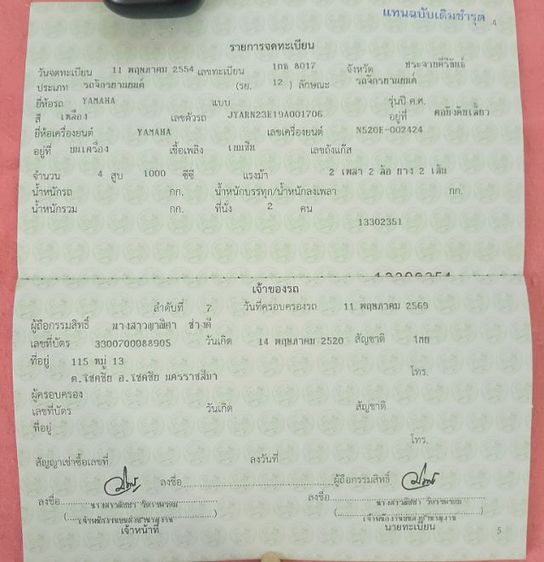 แทนฉบับเดิมชำรุด 4
รายการจดทะเบียน
วันจดทะเบียน 11 พฤษภาคม 2554 เลขทะเบียน 1กธ 8017 จังหวัด
ประเภท รถจักรยานยนต์ (รย. 12 ) ลักษณะ รถจักรยานยนต์
ยี่ห้อรถ YAMAHA แบบ รุ่นปี ค.ศ.
สี เหลือง เลขตัวรถ JYARN23E19A001706 อยู่ที่ คอบังคับเลี้ยว
ยี่ห้อเครื่องยนต์ YAMAHA เลขเครื่องยนต์ N520E-002424
อยู่ที่ บนเครื่อง เชื้อเพลิง เบนซิน เลขถังแก๊ส
จำนวน 4 สูบ 1000 ซีซี แรงม้า 2 เพลา 2 ล้อ ยาง 2 เส้น
น้ำหนักรถ กก. น้ำหนักบรรทุก/น้ำหนักลงเพลา กก.
น้ำหนักรวม กก. ที่นั่ง 2 คน
13302351
เจ้าของรถ
ลำดับที่ 7 วันที่ครอบครองรถ 11 พฤษภาคม 2569
ผู้ถือกรรมสิทธิ์ ช่างดี
เลขที่บัตร 3300700088905 วันเกิด 14 พฤษภาคม 2520 สัญชาติ ไทย
ที่อยู่ 115 หมู่ 13
ต.โชคชัย อ.โชคชัย นครราชสีมา โทร.
ผู้ครอบครอง
เลขที่บัตร วันเกิด สัญชาติ
ที่อยู่
โทร.
สัญญาเช่าซื้อเลขที่ ลงวันที่
ลงชื่อ ผู้ถือกรรมสิทธิ์
ลงชื่อ ลงชื่อ
เจ้าหน้าที่ นายทะเบียน
5